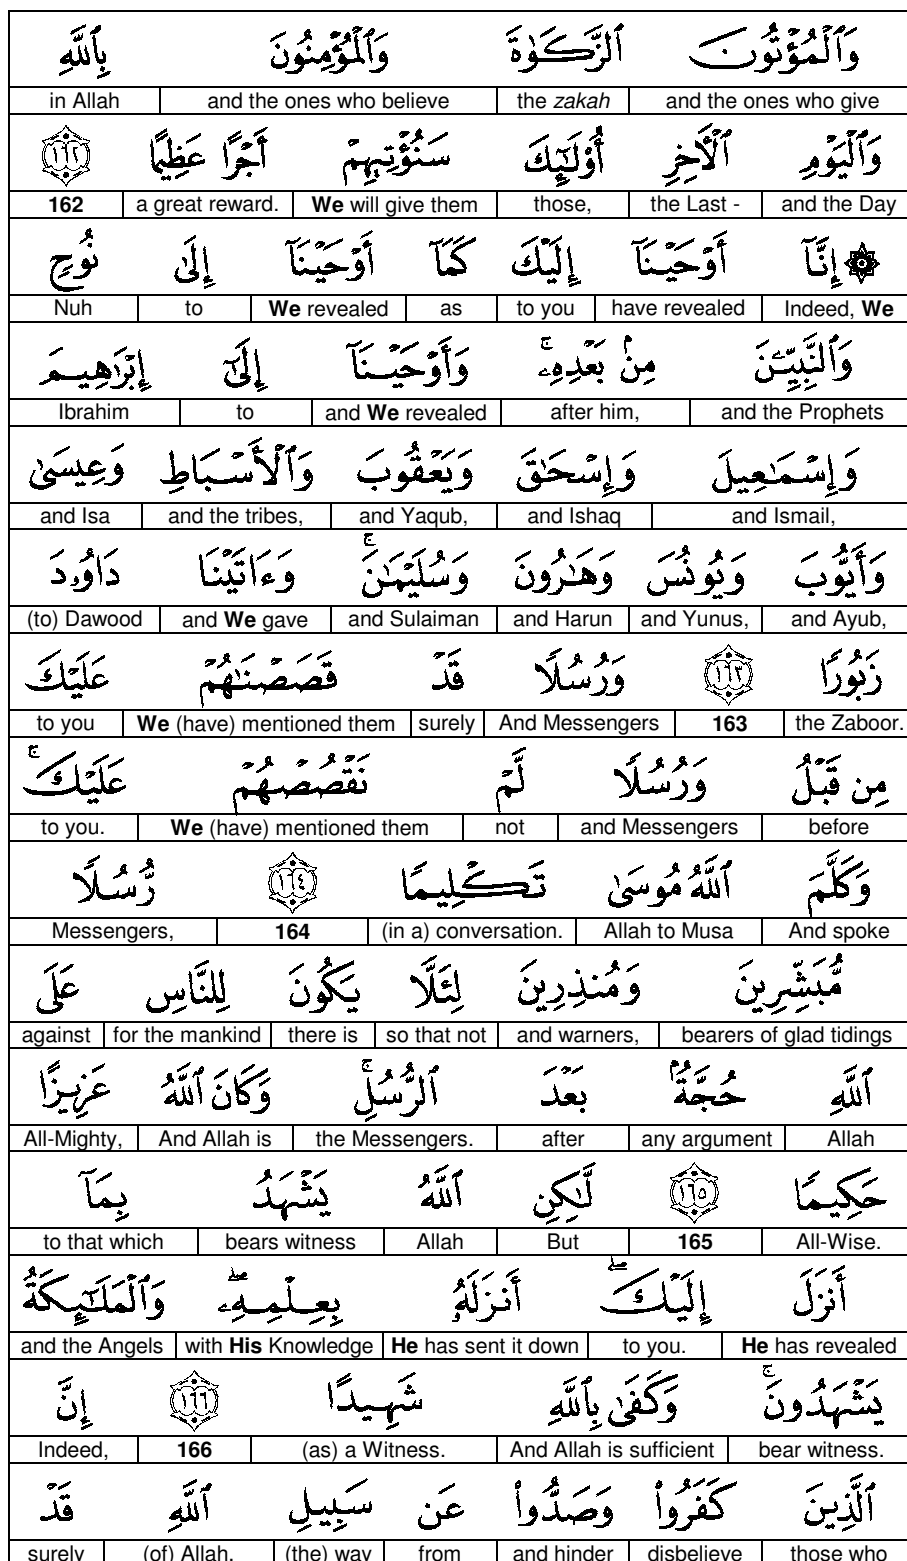 وَٱلْمُؤْتُونَ ٱلزَّكَوٰةَ وَٱلْمُؤْمِنُونَ بِٱللَّهِ
and the ones who give the zakah and the ones who believe in Allah
وَٱلْيَوْمِ ٱلْءَاخِرِ أُو۟لَـٰٓئِكَ سَنُؤْتِيهِمْ أَجْرًا عَظِيمًا ١٦٢
and the Day the Last - those, We will give them a great reward. 162
۞ إِنَّآ أَوْحَيْنَآ إِلَيْكَ كَمَآ أَوْحَيْنَآ إِلَىٰ نُوحٍ
Indeed, We have revealed to you as We revealed to Nuh
وَٱلنَّبِيِّـۧنَ مِنۢ بَعْدِهِۦ ۚ وَأَوْحَيْنَآ إِلَىٰٓ إِبْرَٰهِيمَ
and the Prophets after him, and We revealed to Ibrahim
وَإِسْمَـٰعِيلَ وَإِسْحَـٰقَ وَيَعْقُوبَ وَٱلْأَسْبَاطِ وَعِيسَىٰ
and Ismail, and Ishaq and Yaqub, and the tribes, and Isa
وَأَيُّوبَ وَيُونُسَ وَهَـٰرُونَ وَسُلَيْمَـٰنَ ۚ وَءَاتَيْنَا دَاوُۥدَ
and Ayub, and Yunus, and Harun and Sulaiman and We gave (to) Dawood
زَبُورًا ١٦٣ وَرُسُلًا قَدْ قَصَصْنَـٰهُمْ عَلَيْكَ
the Zaboor. 163 And Messengers surely We (have) mentioned them to you
مِن قَبْلُ وَرُسُلًا لَّمْ نَقْصُصْهُمْ عَلَيْكَ ۚ
before and Messengers not We (have) mentioned them to you.
وَكَلَّمَ ٱللَّهُ مُوسَىٰ تَكْلِيمًا ١٦٤ رُّسُلًا
And spoke Allah to Musa (in a) conversation. 164 Messengers,
مُّبَشِّرِينَ وَمُنذِرِينَ لِئَلَّا يَكُونَ لِلنَّاسِ عَلَى
bearers of glad tidings and warners, so that not there is for the mankind against
ٱللَّهِ حُجَّةٌۢ بَعْدَ ٱلرُّسُلِ ۚ وَكَانَ ٱللَّهُ عَزِيزًا
Allah any argument after the Messengers. And Allah is All-Mighty,
حَكِيمًا ١٦٥ لَّـٰكِنِ ٱللَّهُ يَشْهَدُ بِمَآ
All-Wise. 165 But Allah bears witness to that which
أَنزَلَ إِلَيْكَ ۖ أَنزَلَهُۥ بِعِلْمِهِۦ ۖ وَٱلْمَلَـٰٓئِكَةُ
He has revealed to you. He has sent it down with His Knowledge and the Angels
يَشْهَدُونَ ۚ وَكَفَىٰ بِٱللَّهِ شَهِيدًا ١٦٦ إِنَّ
bear witness. And Allah is sufficient (as) a Witness. 166 Indeed,
ٱلَّذِينَ كَفَرُوا۟ وَصَدُّوا۟ عَن سَبِيلِ ٱللَّهِ قَدْ
those who disbelieve and hinder from (the) way (of) Allah, surely